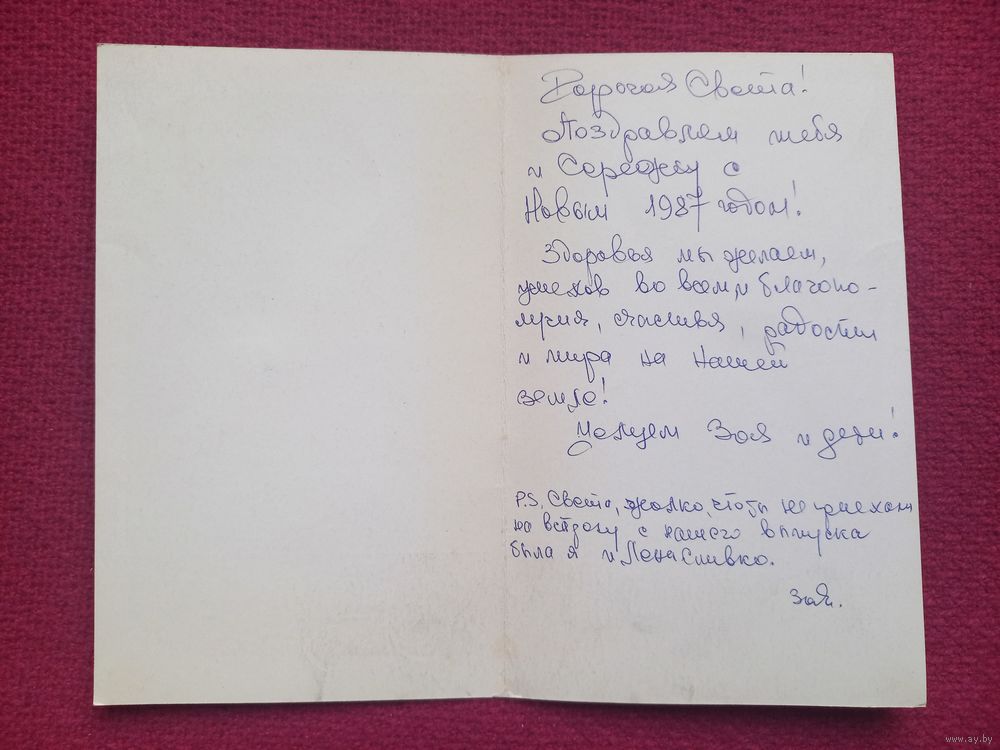 Дорогая Света!
Поздравляем тебя
и Сережу с
Новым 1987 годом!
Здоровья мы желаем,
успехов во всем, благопо-
лучия, счастья, радости
и мира на нашей
земле!
Целуем Зоя и дети!
P.S. Света, жалко, что ты не приехала
на встречу с нашего выпуска
была я и Лена Сливко.
Зоя.
www.ay.by